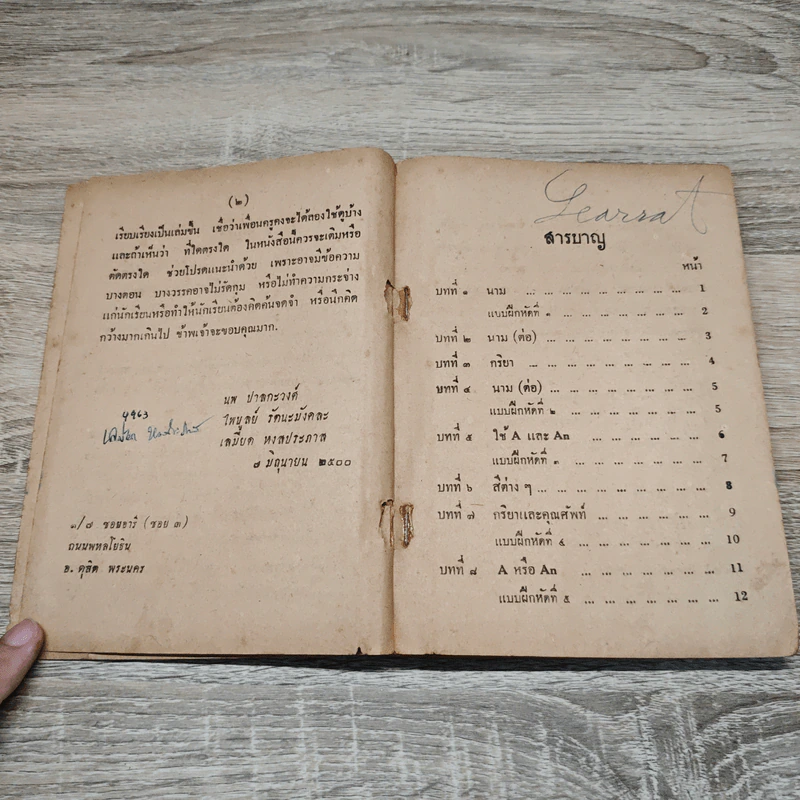 (๒)
เรียบเรียงเป็นเล่มขึ้น เชื่อว่าเพื่อนครูคงจะได้ลองใช้ดูบ้าง
และถ้าเห็นว่า ที่ใดตรงใด ในหนังสือนี้ควรจะเติมหรือ
ตัดตรงใด ช่วยโปรดแนะนำด้วย เพราะอาจมีข้อความ
บางตอน บางวรรคอาจไม่รัดกุม หรือไม่ทำความกระจ่าง
แก่นักเรียนหรือทำให้นักเรียนต้องคิดค้นจดจำ หรือนึกคิด
กว้างมากเกินไป ข้าพเจ้าจะขอบคุณมาก.
นพ ปาลกะวงศ์
ไพบูลย์ รัตนะมังคละ
เสมียด หงสประภาส
๗ มิถุนายน ๒๕๐๐
๓/๗ ซอยอารี (ซอย ๓)
ถนนพหลโยธิน
อ. ดุสิต พระนคร
Learrat
สารบาญ
หน้า
บทที่ ๑ นาม ... ... ... ... ... ... ... 1
แบบฝึกหัดที่ ๑ ... ... ... ... ... ... ... 2
บทที่ ๒ นาม (ต่อ) ... ... ... ... ... ... 3
บทที่ ๓ กริยา ... ... ... ... ... ... ... 4
บทที่ ๔ นาม (ต่อ) ... ... ... ... ... ... 5
แบบฝึกหัดที่ ๒ ... ... ... ... ... ... 5
บทที่ ๕ ใช้ A และ An ... ... ... ... ... 6
แบบฝึกหัดที่ ๓ ... ... ... ... ... ... 7
บทที่ ๖ สีต่าง ๆ ... ... ... ... ... ... ... 8
บทที่ ๗ กริยาและคุณศัพท์ ... ... ... ... ... 9
แบบฝึกหัดที่ ๔ ... ... ... ... ... ... 10
บทที่ ๘ A หรือ An ... ... ... ... ... ... 11
แบบฝึกหัดที่ ๕ ... ... ... ... ... ... ... 12